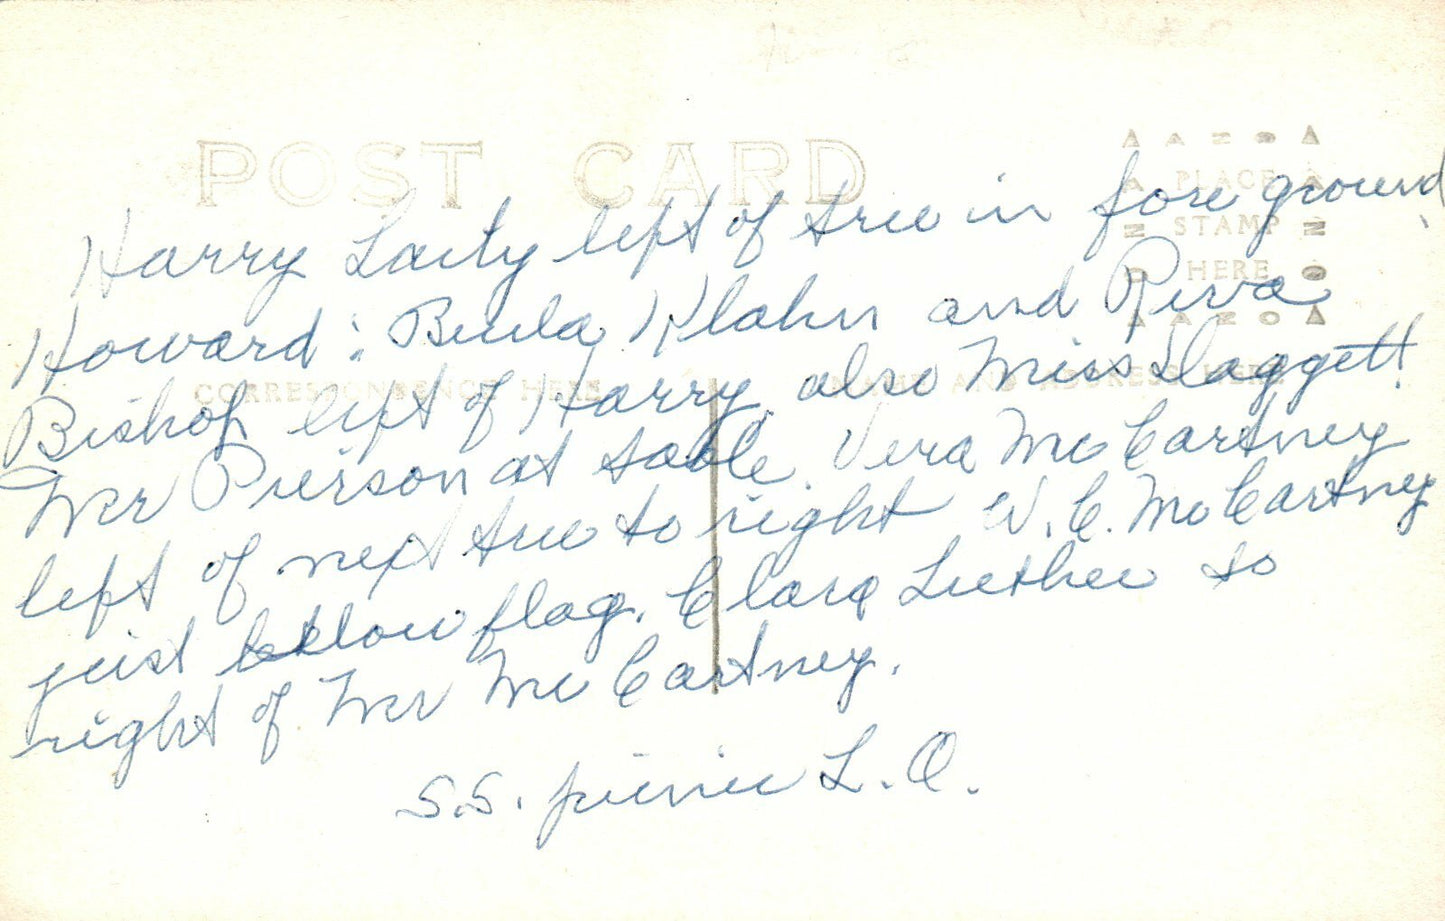 POST CARD
AZO
PLACE STAMP HERE
CORRESPONDENCE HERE
NAME AND ADDRESS HERE
Harry Laity left of tree in fore ground
Howard; Beula Klahn and Reva
Bishop left of Harry, also Miss Daggett
Mr Pierson at table. Vera McCartney
left of next tree to right W. C. McCartney
just below flag. Clara Luther to
right of Mr McCartney.
S.S. picnic L. A.